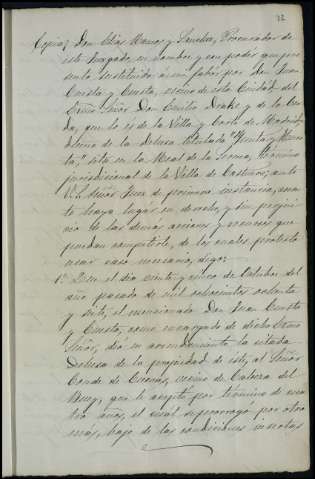 32
Copia; Don Elías Ramos y Sánchez, Procurador de
este Juzgado, en nombre y con poder que pre
sento sustituido a mi favor por Don Juan
Cuesta y Cuesta, vecino de esta Ciudad, del
Excmo Señor Don Emilio Drake y de la Cer
da, que lo es de la Villa y Corte de Madrid,
dueño de la Dehesa titulada
sita en la Real de la Serena, término
jurisdiccional de la Villa de Castuera, ante
V. S. Señor Juez de primera instancia, como
haya lugar en derecho, y sin perjuicio
de las demás acciones y recursos que
puedan competirle, de los cuales protesto
usar caso necesario, digo:
1º Que el día veinte y cinco de Octubre del
año pasado de mil ochocientos ochenta
y siete, el mencionado Don Juan Cuesta
y Cuesta, como encargado de dicho Excmo
Señor, dió en arrendamiento la citada
Dehesa de la propiedad de este, al Señor
Conde de Cuevas, vecino de Cabeza del
Buey, que la aceptó por término de cua
tro años, el cual se prorrogó por otro
más, bajo de las condiciones insertas